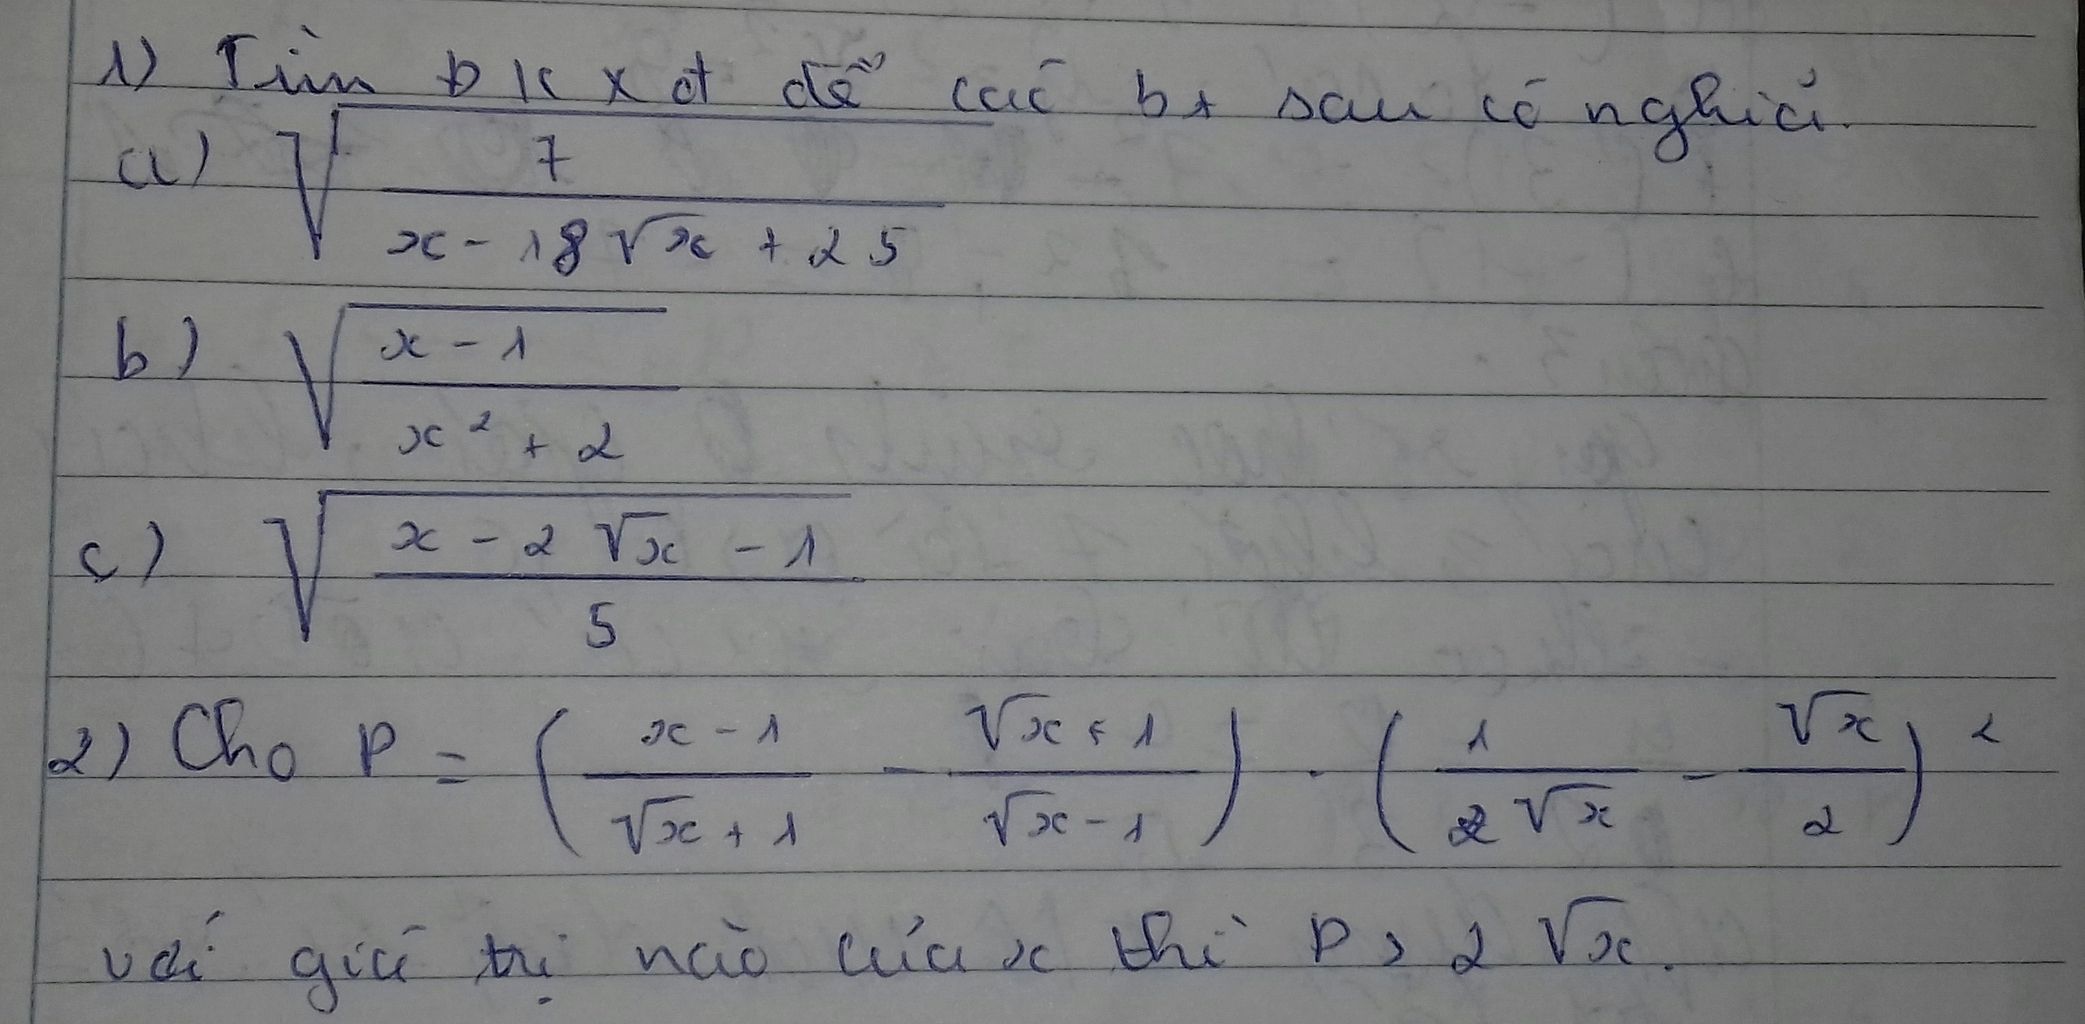 1) Tìm ĐKXĐ để các bt sau có nghĩa.
a) √(7/(x - 18√x + 25))
b) √((x - 1)/(x² + 2))
c) √((x - 2√x - 1)/5)
2) Cho P = ((x - 1)/(√x + 1) - (√x + 1)/(√x - 1)) . (1/(2√x) - √x/2)²
với giá trị nào của x thì P > 2√x.